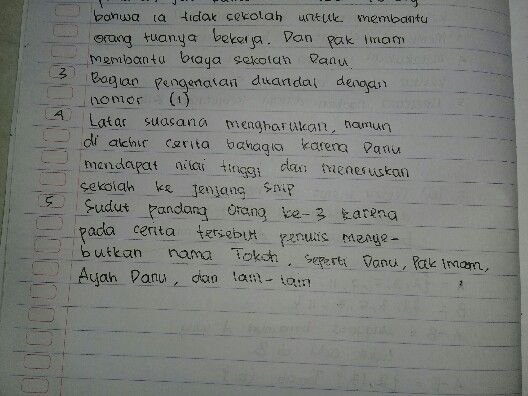 bahwa ia tidak sekolah untuk membantu
orang tuanya bekerja. Dan pak Imam
membantu biaya sekolah Danu.
3 Bagian pengenalan ditandai dengan
nomor (1)
4 Latar suasana mengharukan, namun
di akhir cerita bahagia karena Danu
mendapat nilai tinggi dan meneruskan
sekolah ke jenjang smp
5 Sudut pandang orang ke-3 karena
pada cerita tersebut penulis menye-
butkan nama Tokoh, seperti Danu, Pak Imam,
Ayah Danu, dan lain-lain